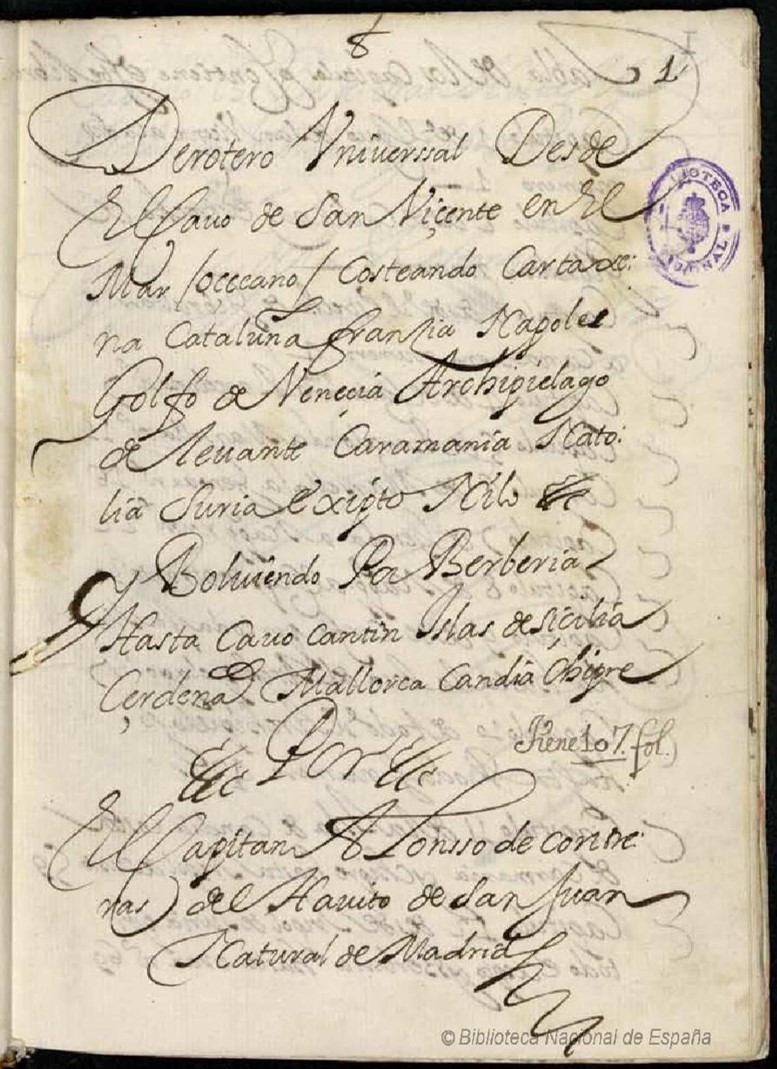 1
Derotero Vniverssal Desde
El Cauo de San Viçente en El
Mar /occeano/ Costeando Cartaxe:
na Cataluña franzia Napoles
Golfo de Veneçia Archipielago
de leuante Caramania Nato:
lia Suria Exipto Nilo &c
y Boluiendo Por Berberia
Hasta Cauo cantin Islas de Sicilia
Çerdeña Mallorca Candia Chipre
Tiene 107. fol.
&c Por &c
El Capitan Alonsso de contre:
ras del Hauito de San Juan
Natural de Madrid
BIBLIOTECA NACIONAL
© Biblioteca Nacional de España